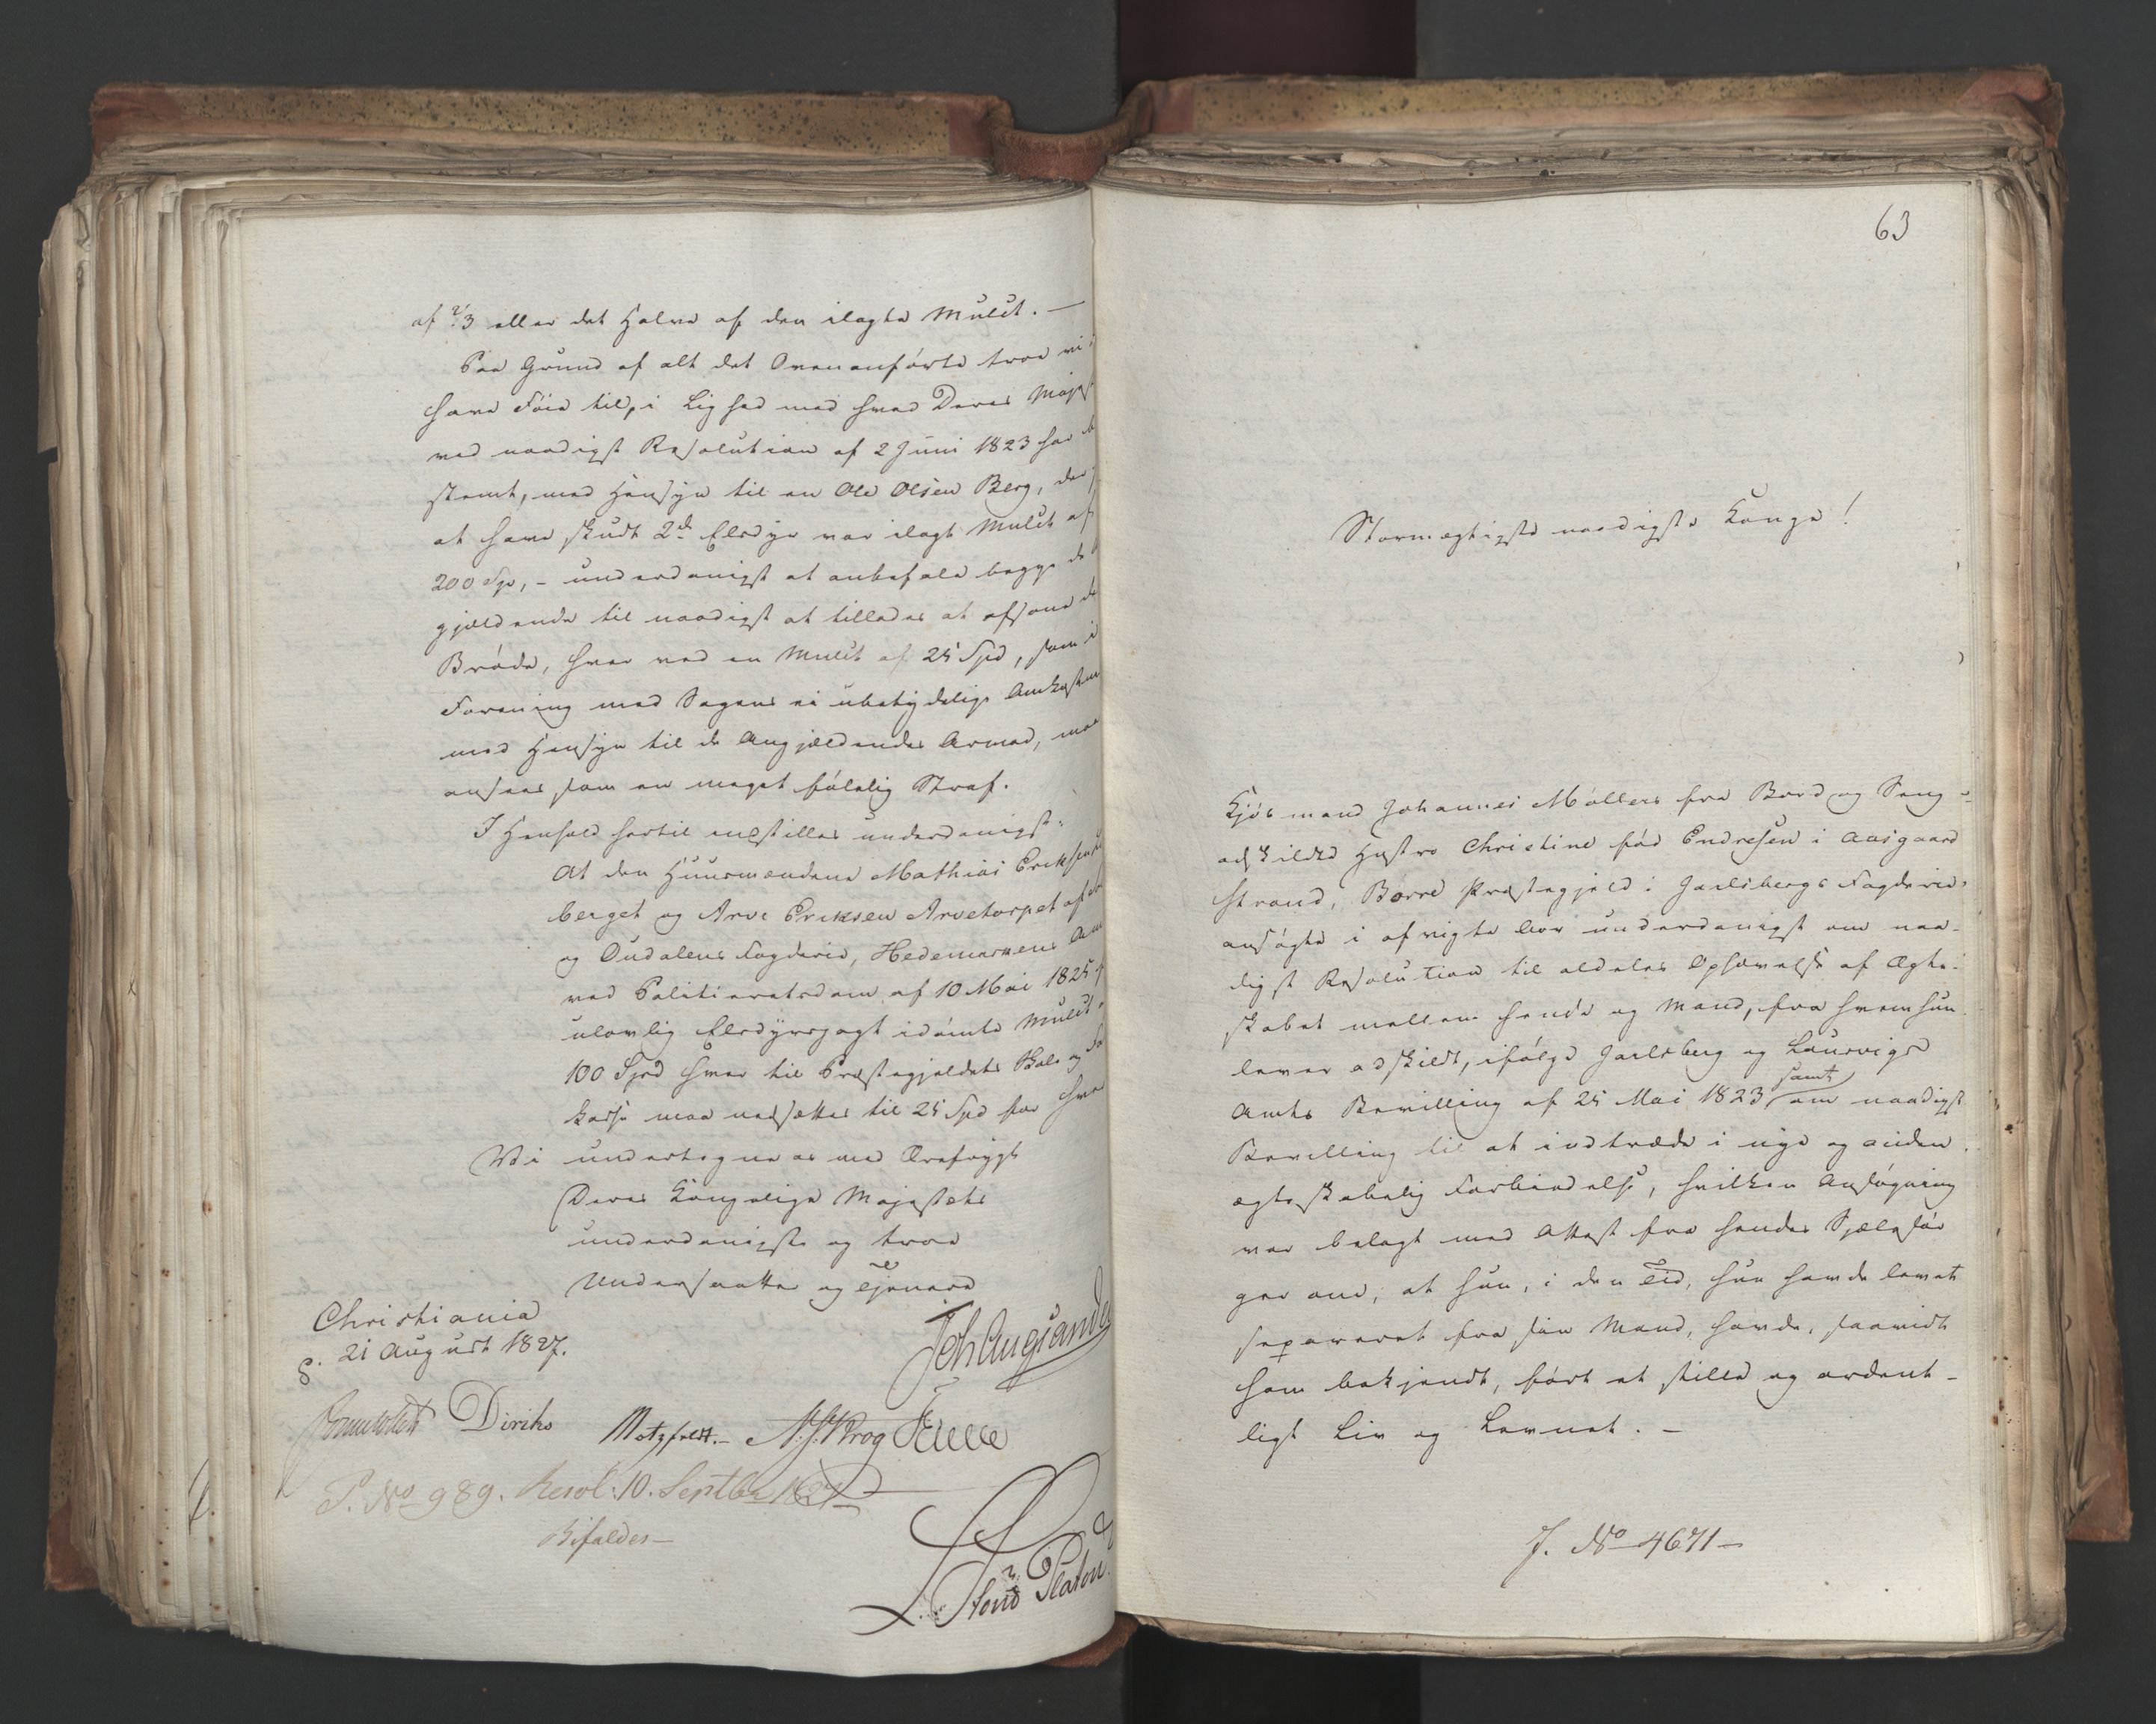 af 2/3 eller det Halve af den ilagte Mulct. —
Paa Grund af alt det Ovenanførte troe vi
have Føie til, i Lighed med hvad Deres Maje
ved naadigst Resolution af 2 Juni 1823 har b
stemt, med Hensyn til en Ole Olsen Berg, der
at have skudt 2de Elsdyr var ilagt Mulct af
200 Spd, – underdanigst at anbefale begge de
gjældende til naadigst at tillades at afsone de
Brøde, hver ved en Mulct af 25 Spd, som i
Forening med Sagens ei ubetydelige Omkostn
med Hensyn til de Angjældendes Armod, maa
ansees som en meget følelig Straf.
I Henhold hertil indstilles underdanigst:
At den Huusmændene Mathias Eriksen
berget og Arve Eriksen Arvetorpet af
og Oudalens Fogderie, Hedemarkens Am
ved Politieretsdom af 10 Mai 1825
ulovlig Elsdyrsjagt idømte Mulct
100 Spd hver til Præstegjeldets Skole og Fa
kasse maa nedsættes til 25 Spd for hver
Vi undertegne os med Ærefrygt
Deres Kongelige Majestæts
underdanigste og troe
Undersaatter og Tjenere
Christiania
d. 21 August 1827.
Joh Aug Sande
Sommerhielm Diriks Motzfeldt. – N. J. Krog
P. No 989. Resol: 10. Septbr 1827
Bifaldes —
v. Platou
63
Stormægtigste naadigste Konge!
Kjøbmand Johannes Møllers fra Bord og Seng
adskildte Hustro Christine fød Endresen i Aasgaard
strand, Borre Præstegjeld i Jarlsbergs Fogderie
ansøgte i afvigte Aar underdanigst om naa-
digst Resolution til aldeles Ophævelse af Ægte-
skabet mellem hende og Mand, fra hvem hun
lever adskildt, ifølge Jarlsberg og Laurvigs
Amts Bevilling af 25 Mai 1823 samt om naadigst
Bevilling til at indtræde i nye og anden
ægteskabelig Forbindelse, hvilken Ansøgning
var belagt med Attest fra hendes Sjælesør
ger om, at hun, i den Tid, hun havde levet
separeret fra sin Mand, havde, saavidt
ham bekjendt, ført et stille og ordent-
ligt Liv og Levnet. –
J. No 4671 –